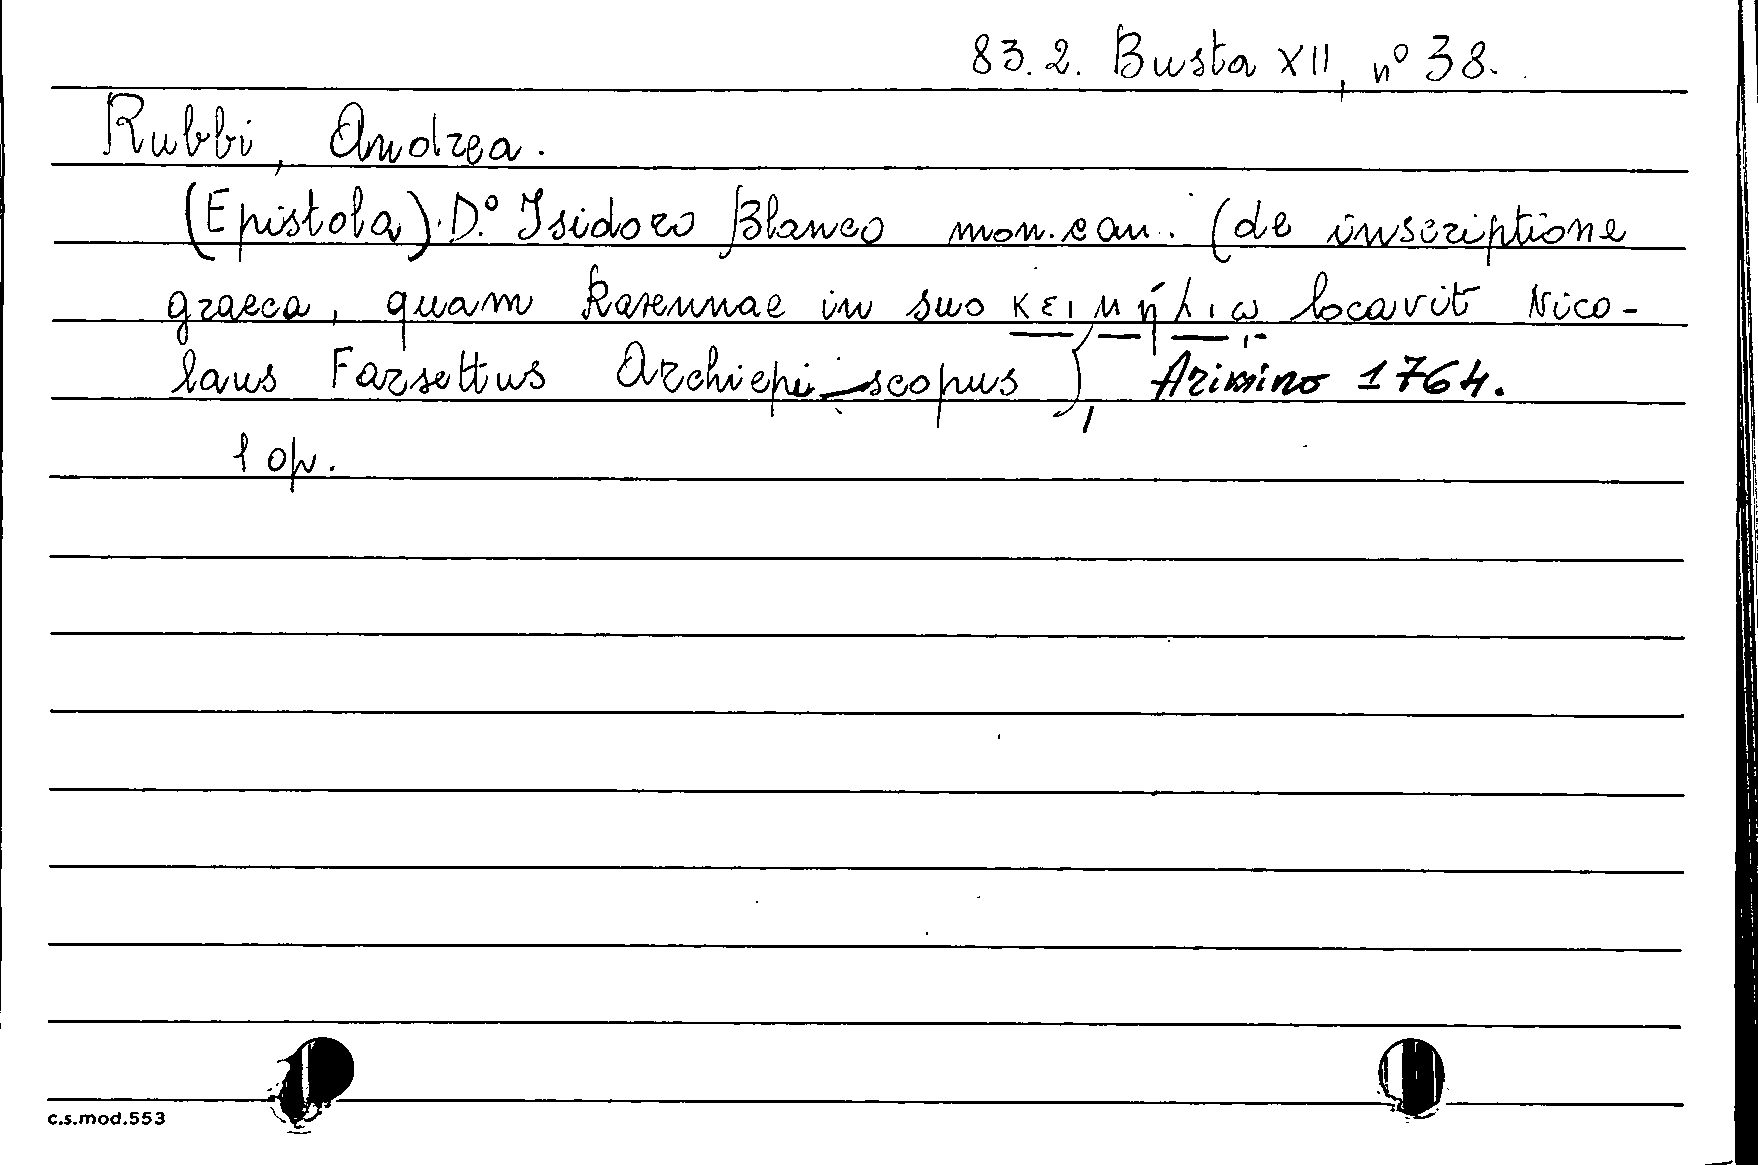 83.2. Busta XII, nº 38.
Rubbi, Andrea.
(Epistola). D.º Isidoro Blanco mon. cam. (de inscriptione
graeca, quam Ravennae in suo κειμήλιῳ locavit Nico-
laus Farsettus Archiepi-scopus), Arimino 1764.
1 op.
c.s.mod.553